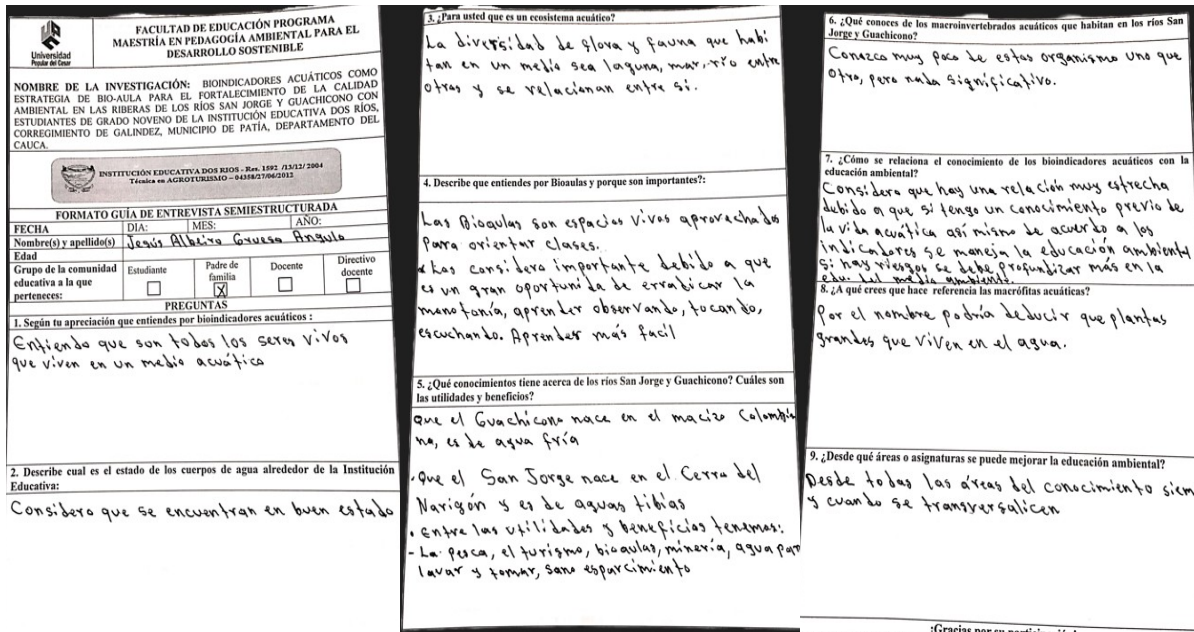 Universidad
Popular del Cesar
FACULTAD DE EDUCACIÓN PROGRAMA
MAESTRÍA EN PEDAGOGÍA AMBIENTAL PARA EL
DESARROLLO SOSTENIBLE
NOMBRE DE LA INVESTIGACIÓN: BIOINDICADORES ACUÁTICOS COMO
ESTRATEGIA DE BIO-AULA PARA EL FORTALECIMIENTO DE LA CALIDAD
AMBIENTAL EN LAS RIBERAS DE LOS RÍOS SAN JORGE Y GUACHICONO CON
ESTUDIANTES DE GRADO NOVENO DE LA INSTITUCIÓN EDUCATIVA DOS RÍOS,
CORREGIMIENTO DE GALINDEZ, MUNICIPIO DE PATÍA, DEPARTAMENTO DEL
CAUCA.
INSTITUCIÓN EDUCATIVA DOS RIOS - Res. 1592 /13/12/ 2004
Técnica en AGROTURISMO – 04358/27/06/2012
FORMATO GUÍA DE ENTREVISTA SEMIESTRUCTURADA
FECHA DIA: MES: AÑO:
Nombre(s) y apellido(s) Jesús Albeiro Grueso Angulo
Edad
Grupo de la comunidad
educativa a la que
perteneces:
Estudiante
Padre de
familia
X
Docente
Directivo
docente
PREGUNTAS
1. Según tu apreciación que entiendes por bioindicadores acuáticos :
Entiendo que son todos los seres vivos
que viven en un medio acuático
2. Describe cual es el estado de los cuerpos de agua alrededor de la Institución
Educativa:
Considero que se encuentran en buen estado
3. ¿Para usted que es un ecosistema acuático?
La diversidad de flora y fauna que habi
tan en un medio sea laguna, mar, río entre
otras y se relacionan entre sí.
4. Describe que entiendes por Bioaulas y porque son importantes?:
Las Bioaulas son espacios vivos aprovechados
para orientar clases.
Las considero importante debido a que
es un gran oportunida de erradicar la
monotonía, aprender observando, tocando,
escuchando. Aprender más facil
5. ¿Qué conocimientos tiene acerca de los ríos San Jorge y Guachicono? Cuáles son
las utilidades y beneficios?
Que el Guachicono nace en el macizo Colombia
no, es de agua fría
• Que el San Jorge nace en el Cerro del
Narigón y es de aguas tibias
• Entre las utilidades y beneficios tenemos:
- La pesca, el turismo, bioaulas, minería, agua para
lavar y tomar, sano esparcimiento
6. ¿Qué conoces de los macroinvertebrados acuáticos que habitan en los ríos San
Jorge y Guachicono?
Conozco muy poco de estos organismo uno que
otro, pero nada significativo.
7. ¿Cómo se relaciona el conocimiento de los bioindicadores acuáticos con la
educación ambiental?
Considero que hay una relación muy estrecha
debido a que si tengo un conocimiento previo de
la vida acuática asi mismo de acuerdo a los
indicadores se maneja la educación ambiental
si hay riesgos se debe profundizar más en la
edu. del medio ambiente.
8. ¿A qué crees que hace referencia las macrófitas acuáticas?
Por el nombre podría deducir que plantas
grandes que viven en el agua.
9. ¿Desde qué áreas o asignaturas se puede mejorar la educación ambiental?
Desde todas las áreas del conocimiento siem
y cuando se transversalicen
¡Gracias por su